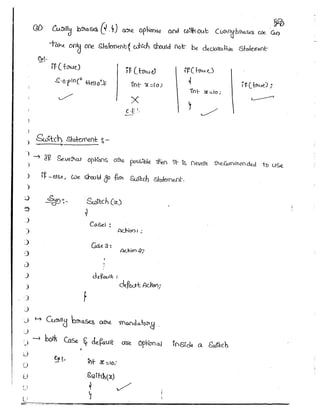 Curly braces ({ }) are optional and without Curly braces we Can
take only one Statement & which should not be declarative Statement
Ex:-
if(true) if(true) if(true) if(true);
S.o.pln("Hello"); int x=10; {
int x=10;
}
C.E:
Switch Statement :-
→ If Several options are possible then it is never recommended to use
if-else, we should go for Switch statement.
Syn:- Switch(x)
{
Case1 :
Action1;
Case2:
Action2;
default :
default Action;
}
→ Curly braces are mandatory.
→ both Case & default are optional inside a Switch
Ex1. int x=10;
Switch(x)
{
}